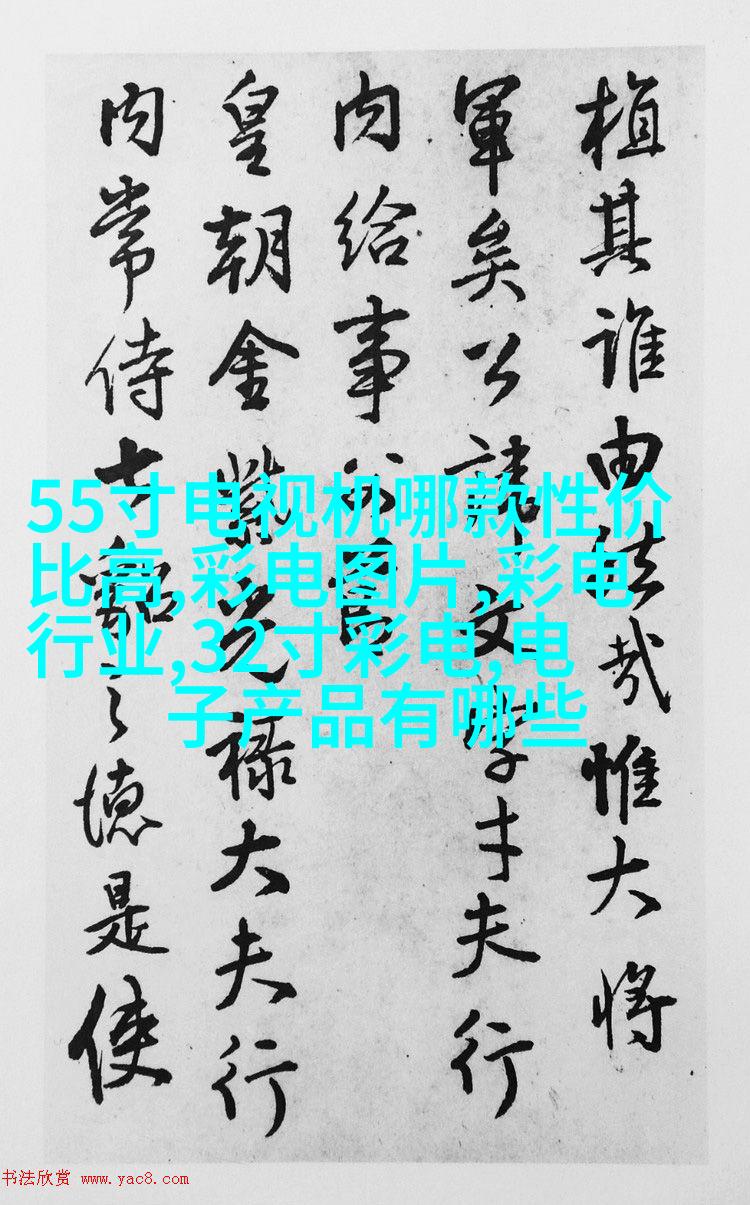 植其誰由法哉惟大將
軍矣公諱文學才夫行
內給事
皇朝金紫光祿大夫行
內常侍之德是使
55寸电视机哪款性价
比高,彩电图片,彩电
行业,32寸彩电,电
子产品有哪些
书法欣赏 www.yac8.com